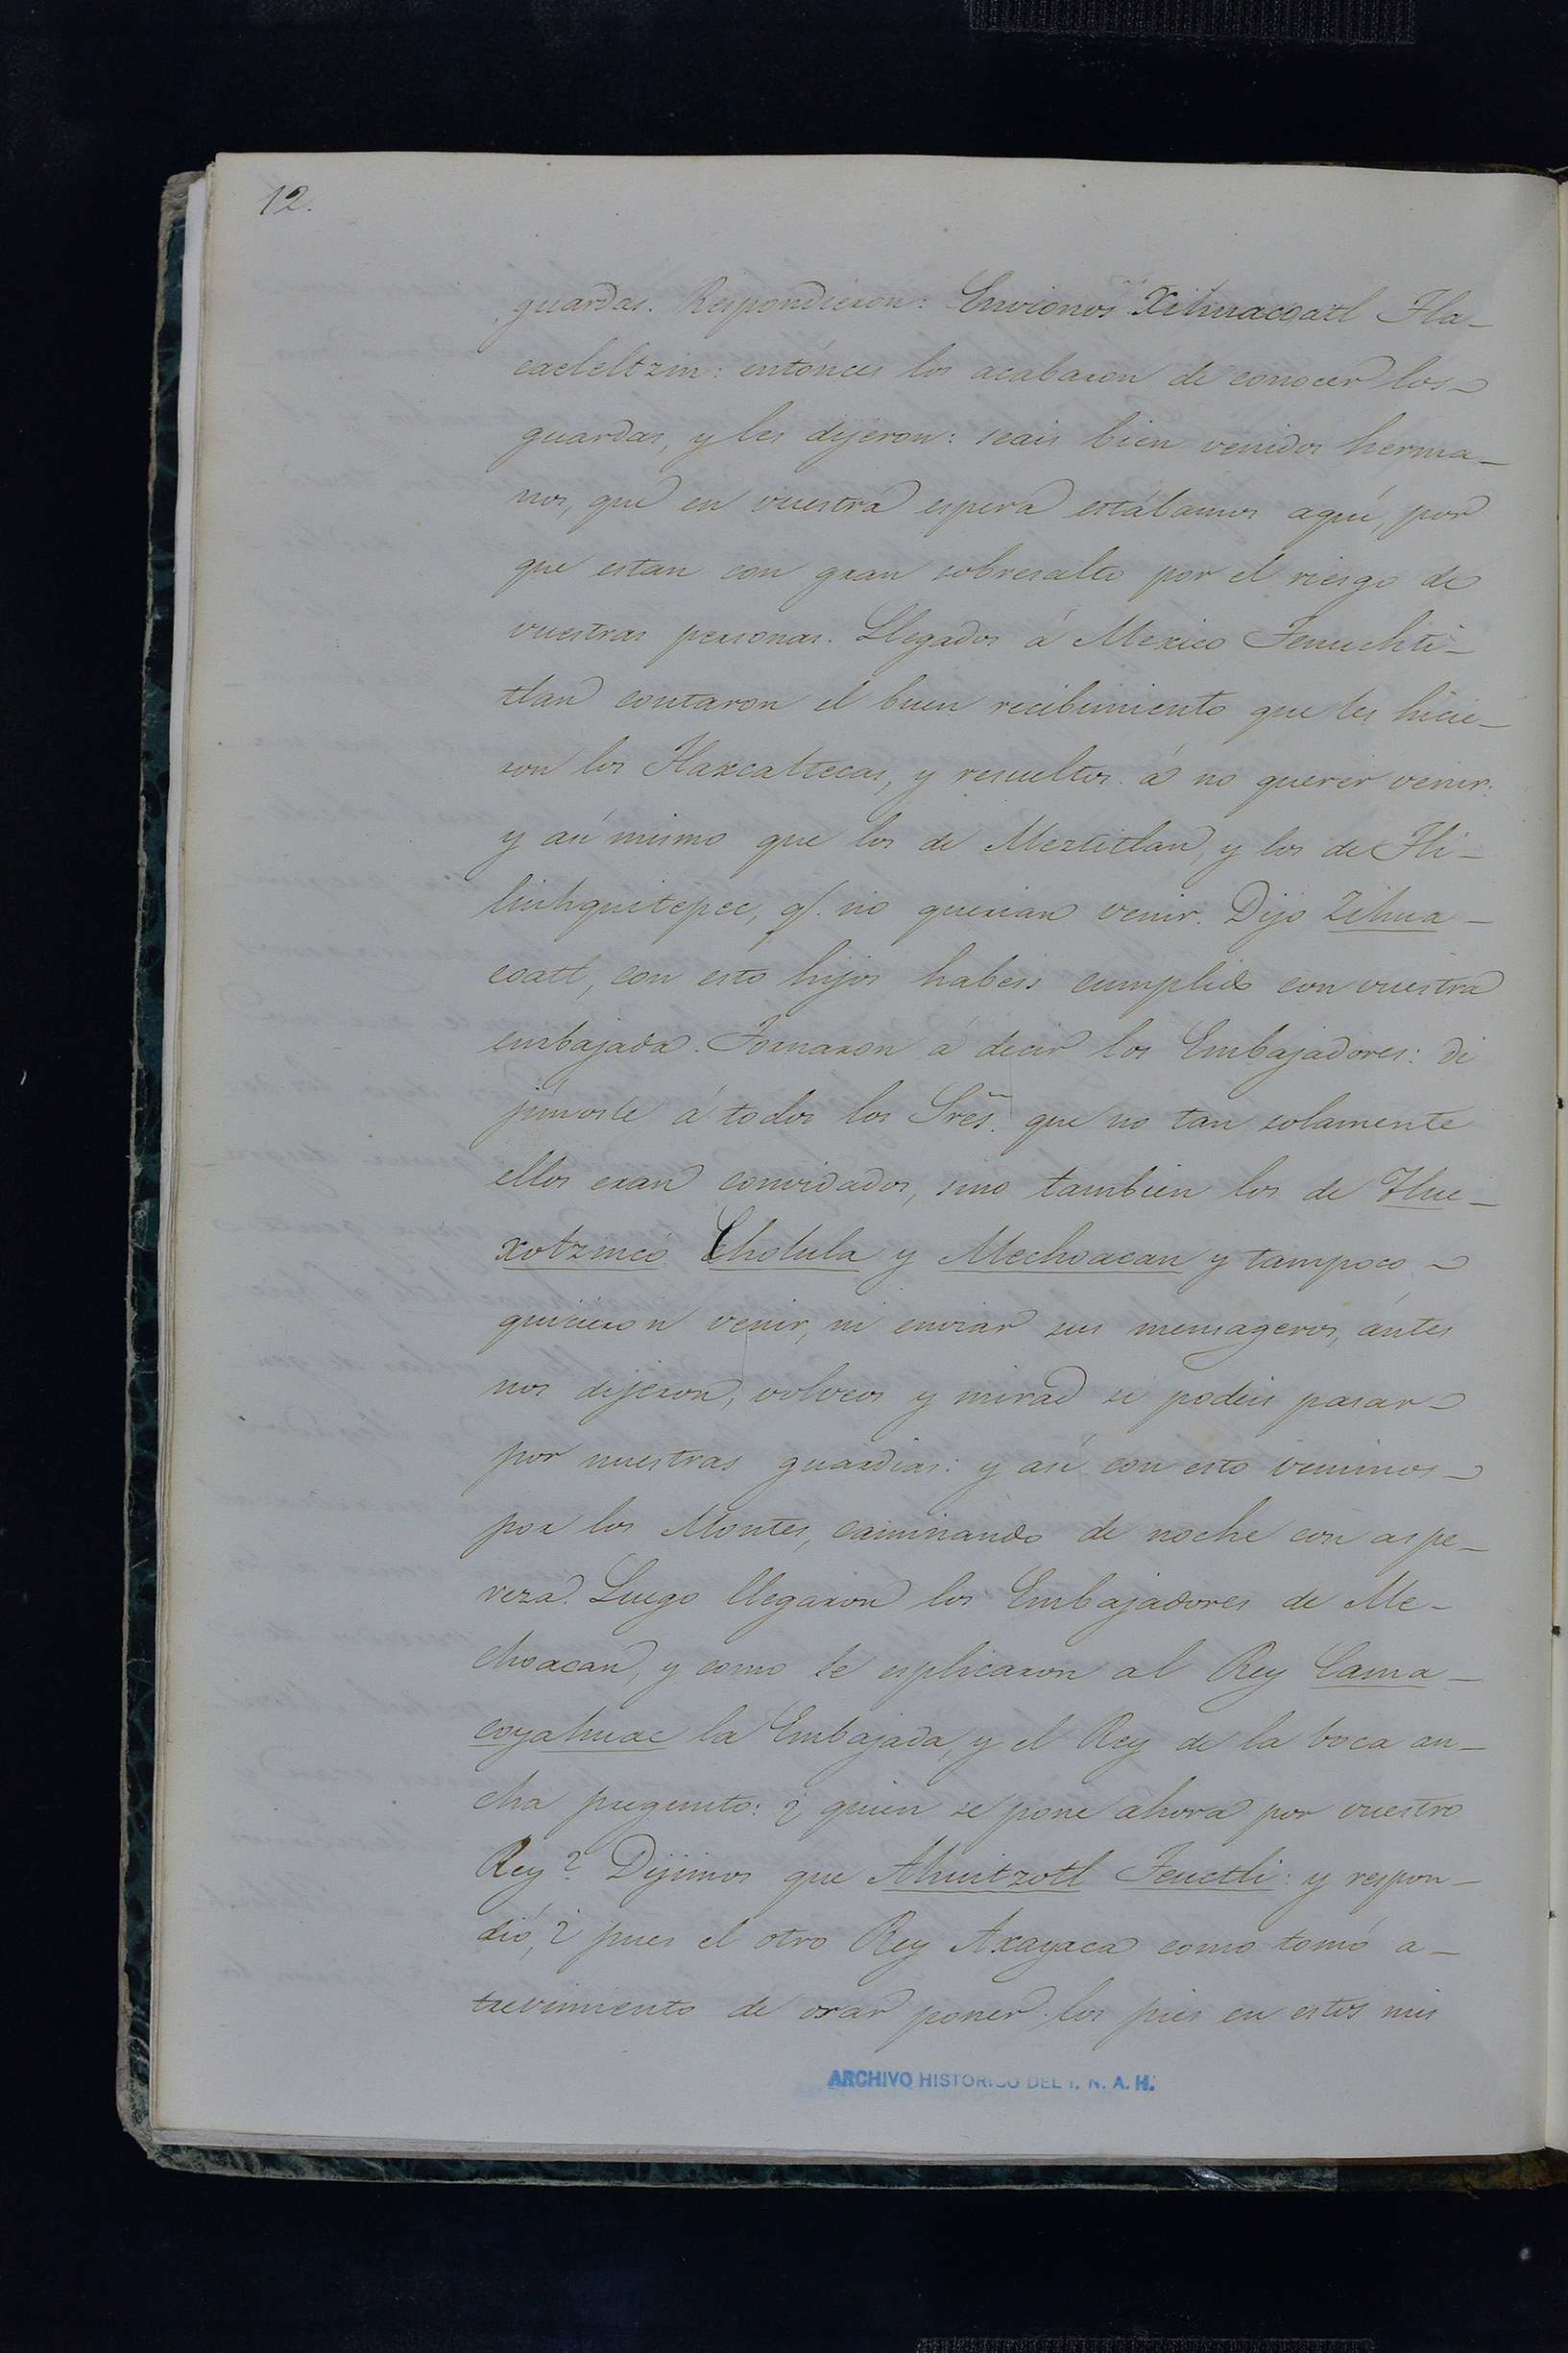 12.
guardas. Respondieron: Envionos Xihuacoatl Tla-
caeleltzin: entónces los acabaron de conocer los
guardas, y les dijeron: seais bien venidos herma-
nos, que en vuestra espera estábamos aquí, por
que estan con gran sobresalto por el riesgo de
vuestras personas. Llegados á Mexico Tenuchti-
tlan contaron el buen recibimiento que les hicie-
ron los Tlaxcaltecas, y resueltos á no querer venir:
y así mismo que los de Meztitlan, y los de Tli-
liuhquitepec, q. no querian venir. Dijo Zihua-
coatl, con esto hijos habeis cumplido con vuestra
embajada. Tornaron á decir los Embajadores: di
jimosle á todos los Sres. que no tan solamente
ellos eran convidados, sino tambien los de Hue-
xotzinco. Cholula y Mechoacan y tampoco
quisieron venir, ni enviar sus mensageros, ántes
nos dijeron, volveos y mirad si podeis pasar
por nuestras guardias: y así con esto venimos
por los Montes, caminando de noche con aspe-
reza. Luego llegaron los Embajadores de Me-
choacan, y como le esplicaron al Rey Cama-
coyahuac la Embajada, y el Rey de la boca an-
cha pregunto: ¿quien se pone ahora por vuestro
Rey? Dijimos que Ahuitzotl Teuctli: y respon-
dió, ¿pues el otro Rey Axayaca como tomó a-
trevimiento de osar poner los pies en estos mis
ARCHIVO HISTORICO DEL I. N. A. H.